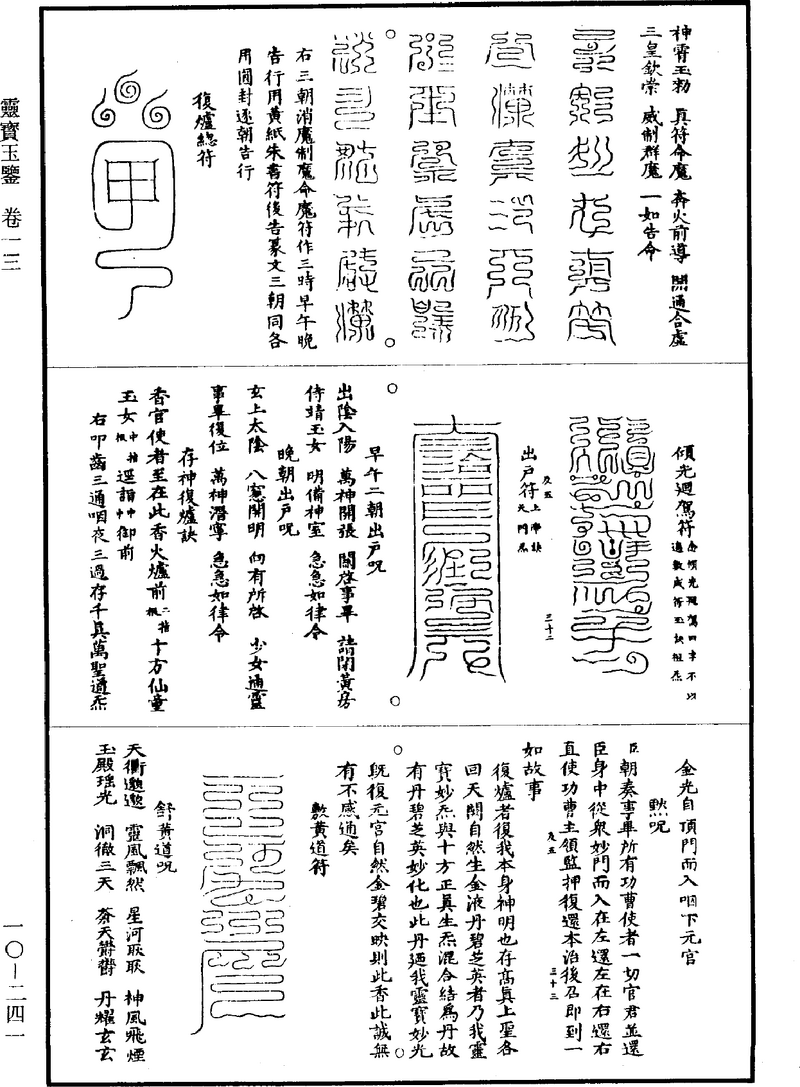 靈寶玉鑒 卷一三
一〇—二四一
神霄玉勑 真符命魔 奔火前導 開通合虛
三皇欽崇 威制群魔 一如告命
右三朝消魔制魔命魔符作三時早午晚
告行用黃紙朱書符復告篆文三朝同各
用圓封逐朝告行
復爐總符
傾光迴駕符
念傾光迴駕四字不以
遍數成符玉訣祖炁
三十二
出戶符
及五
上帝訣
天門炁
早午二朝出戶呪
出陰入陽 萬神開張 關啓事畢 請閉黃房
侍靖玉女 明備神室 急急如律令
晚朝出戶呪
玄上太陰 八窻開明 向有所啓 少女通靈
事畢復位 萬神潛寧 急急如律令
存神復爐訣
香官使者至在此香火爐前二指根十方仙童
玉女中指根逕詣中中御前
右叩齒三通咽夜三過存千真萬聖通炁
金光自頂門而入咽下元宮
默呪
臣朝奏事畢所有功曹使者一切官君並還
臣身中從衆妙門而入在左還左在右還右
直使功曹主領監押復還本治後召即到一
及五
三十三
如故事
復爐者復我本身神明也存高真上聖各
回天闕自然生金液丹碧芝英者乃我靈
寶妙炁與十方正真生炁混合結為丹故
有丹碧芝英妙化也此丹迺我靈寶妙光
既復元宮自然金碧交映則此香此誠無
有不感通矣
敷黃道符
舒黃道呪
天衢邈邈 靈風飄然 星河耿耿 神風飛煙
玉殿瑶光 洞徹三天 蒼天欝欝 丹耀玄玄